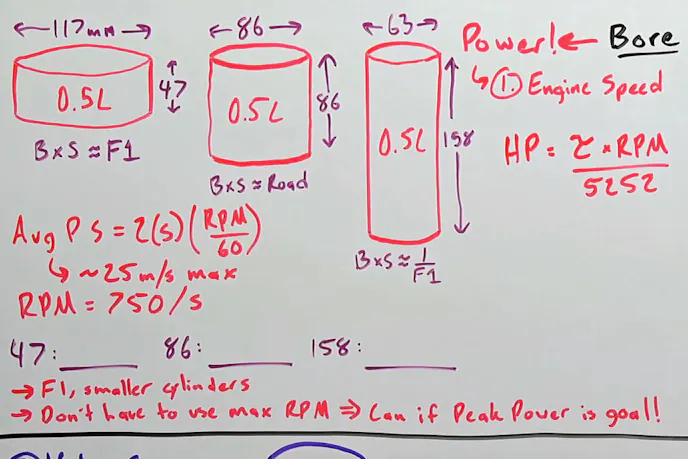 117mm
0.5L
47
B×S≈F1
86
0.5L
86
B×S≈Road
63
0.5L
158
B×S≈ 1/F1
Power! ← Bore
↳ ①. Engine Speed
HP = τ × RPM / 5252
Avg P S = 2(s)(RPM/60)
↳ ~25 m/s max
RPM = 750/s
47: ____ 86: ____ 158: ____
→ F1, smaller cylinders
→ Don't have to use max RPM ⇒ Can if Peak Power is goal!